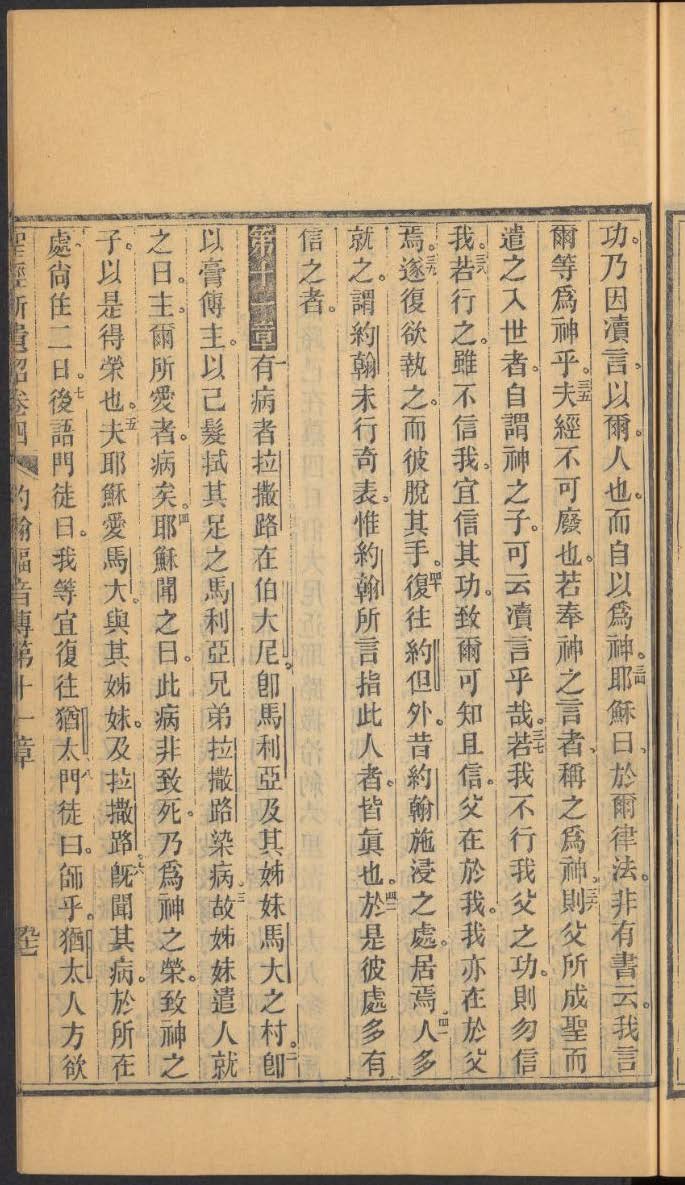 功乃因瀆言以爾人也而自以爲神三四耶穌曰於爾律法非有書云我言
爾等爲神乎三五夫經不可廢也若奉神之言者稱之爲神三六則父所成聖而
遣之入世者自謂神之子可云瀆言乎哉三七若我不行我父之功則勿信
我三八若行之雖不信我宜信其功致爾可知且信父在於我我亦在於父
焉三九遂復欲執之而彼脫其手四十復往約但外昔約翰施浸之處居焉四一人多
就之謂約翰未行奇表惟約翰所言指此人者皆眞也四二於是彼處多有
信之者
第十一章一有病者拉撒路在伯大尼卽馬利亞及其姊妹馬大之村二卽
以膏傅主以己髮拭其足之馬利亞兄弟拉撒路染病三故姊妹遣人就
之曰主爾所愛者病矣四耶穌聞之曰此病非致死乃爲神之榮致神之
子以是得榮也五夫耶穌愛馬大與其姊妹及拉撒路六旣聞其病於所在
處尙住二日七後語門徒曰我等宜復往猶太八門徒曰師乎猶太人方欲
聖經新遺詔卷四 約翰福音傳第十一章